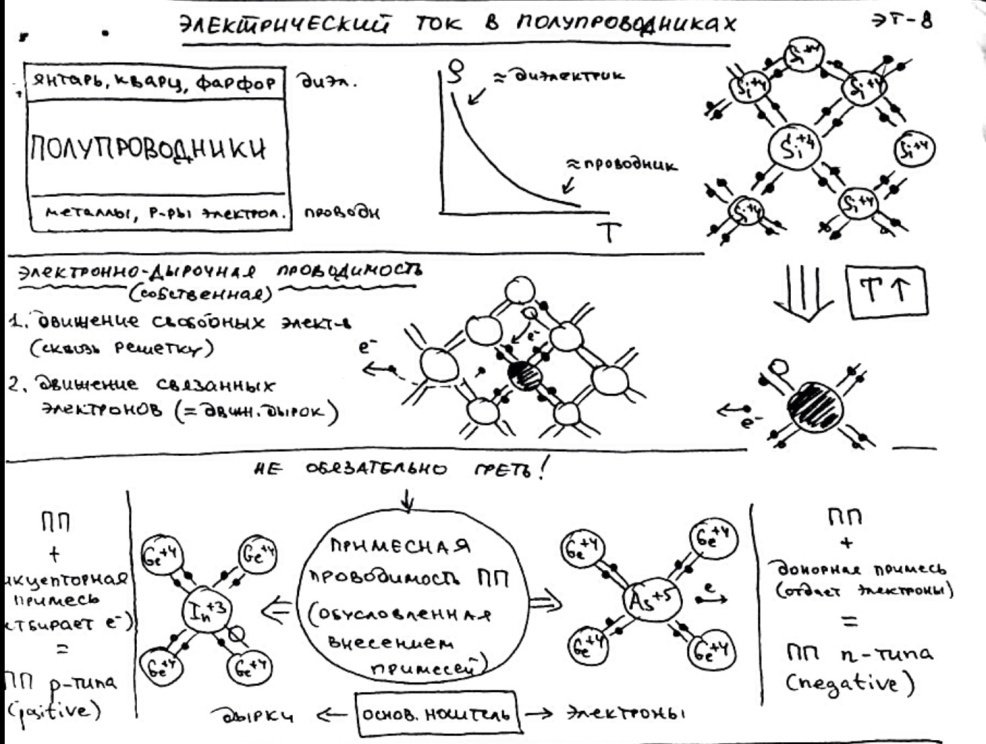 ЭЛЕКТРИЧЕСКИЙ ТОК В ПОЛУПРОВОДНИКАХ
ЭТ-8
ЯНТАРЬ, КВАРЦ, ФАРФОР
диэл.
ПОЛУПРОВОДНИКИ
металлы, р-ры электрол.
проводн
ρ
≈диэлектрик
≈проводник
T
Si+4
Si+4
Si+4
Si+4
Si+4
Si+4
Si+4
T↑
ЭЛЕКТРОННО-ДЫРОЧНАЯ ПРОВОДИМОСТЬ
(собственная)
1. движение свободных элект-в
(сквозь решетку)
2. движение связанных
электронов (= движ. дырок)
e-
e-
e-
НЕ ОБЯЗАТЕЛЬНО ГРЕТЬ!
ПП
+
акцепторная
примесь
отбирает e-)
=
ПП p-типа
(positive)
Ge+4
Ge+4
In+3
Ge+4
Ge+4
ПРИМЕСНАЯ
ПРОВОДИМОСТЬ ПП
(обусловленная
внесением
примесей)
Ge+4
Ge+4
As+5
e
Ge+4
Ge+4
ПП
+
донорная примесь
(отдает электроны)
=
ПП n-типа
(negative)
дырки ← основ. носитель → электроны